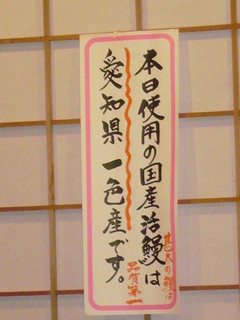 本日使用の国産活鰻は
愛知県一色産です。
品質第一